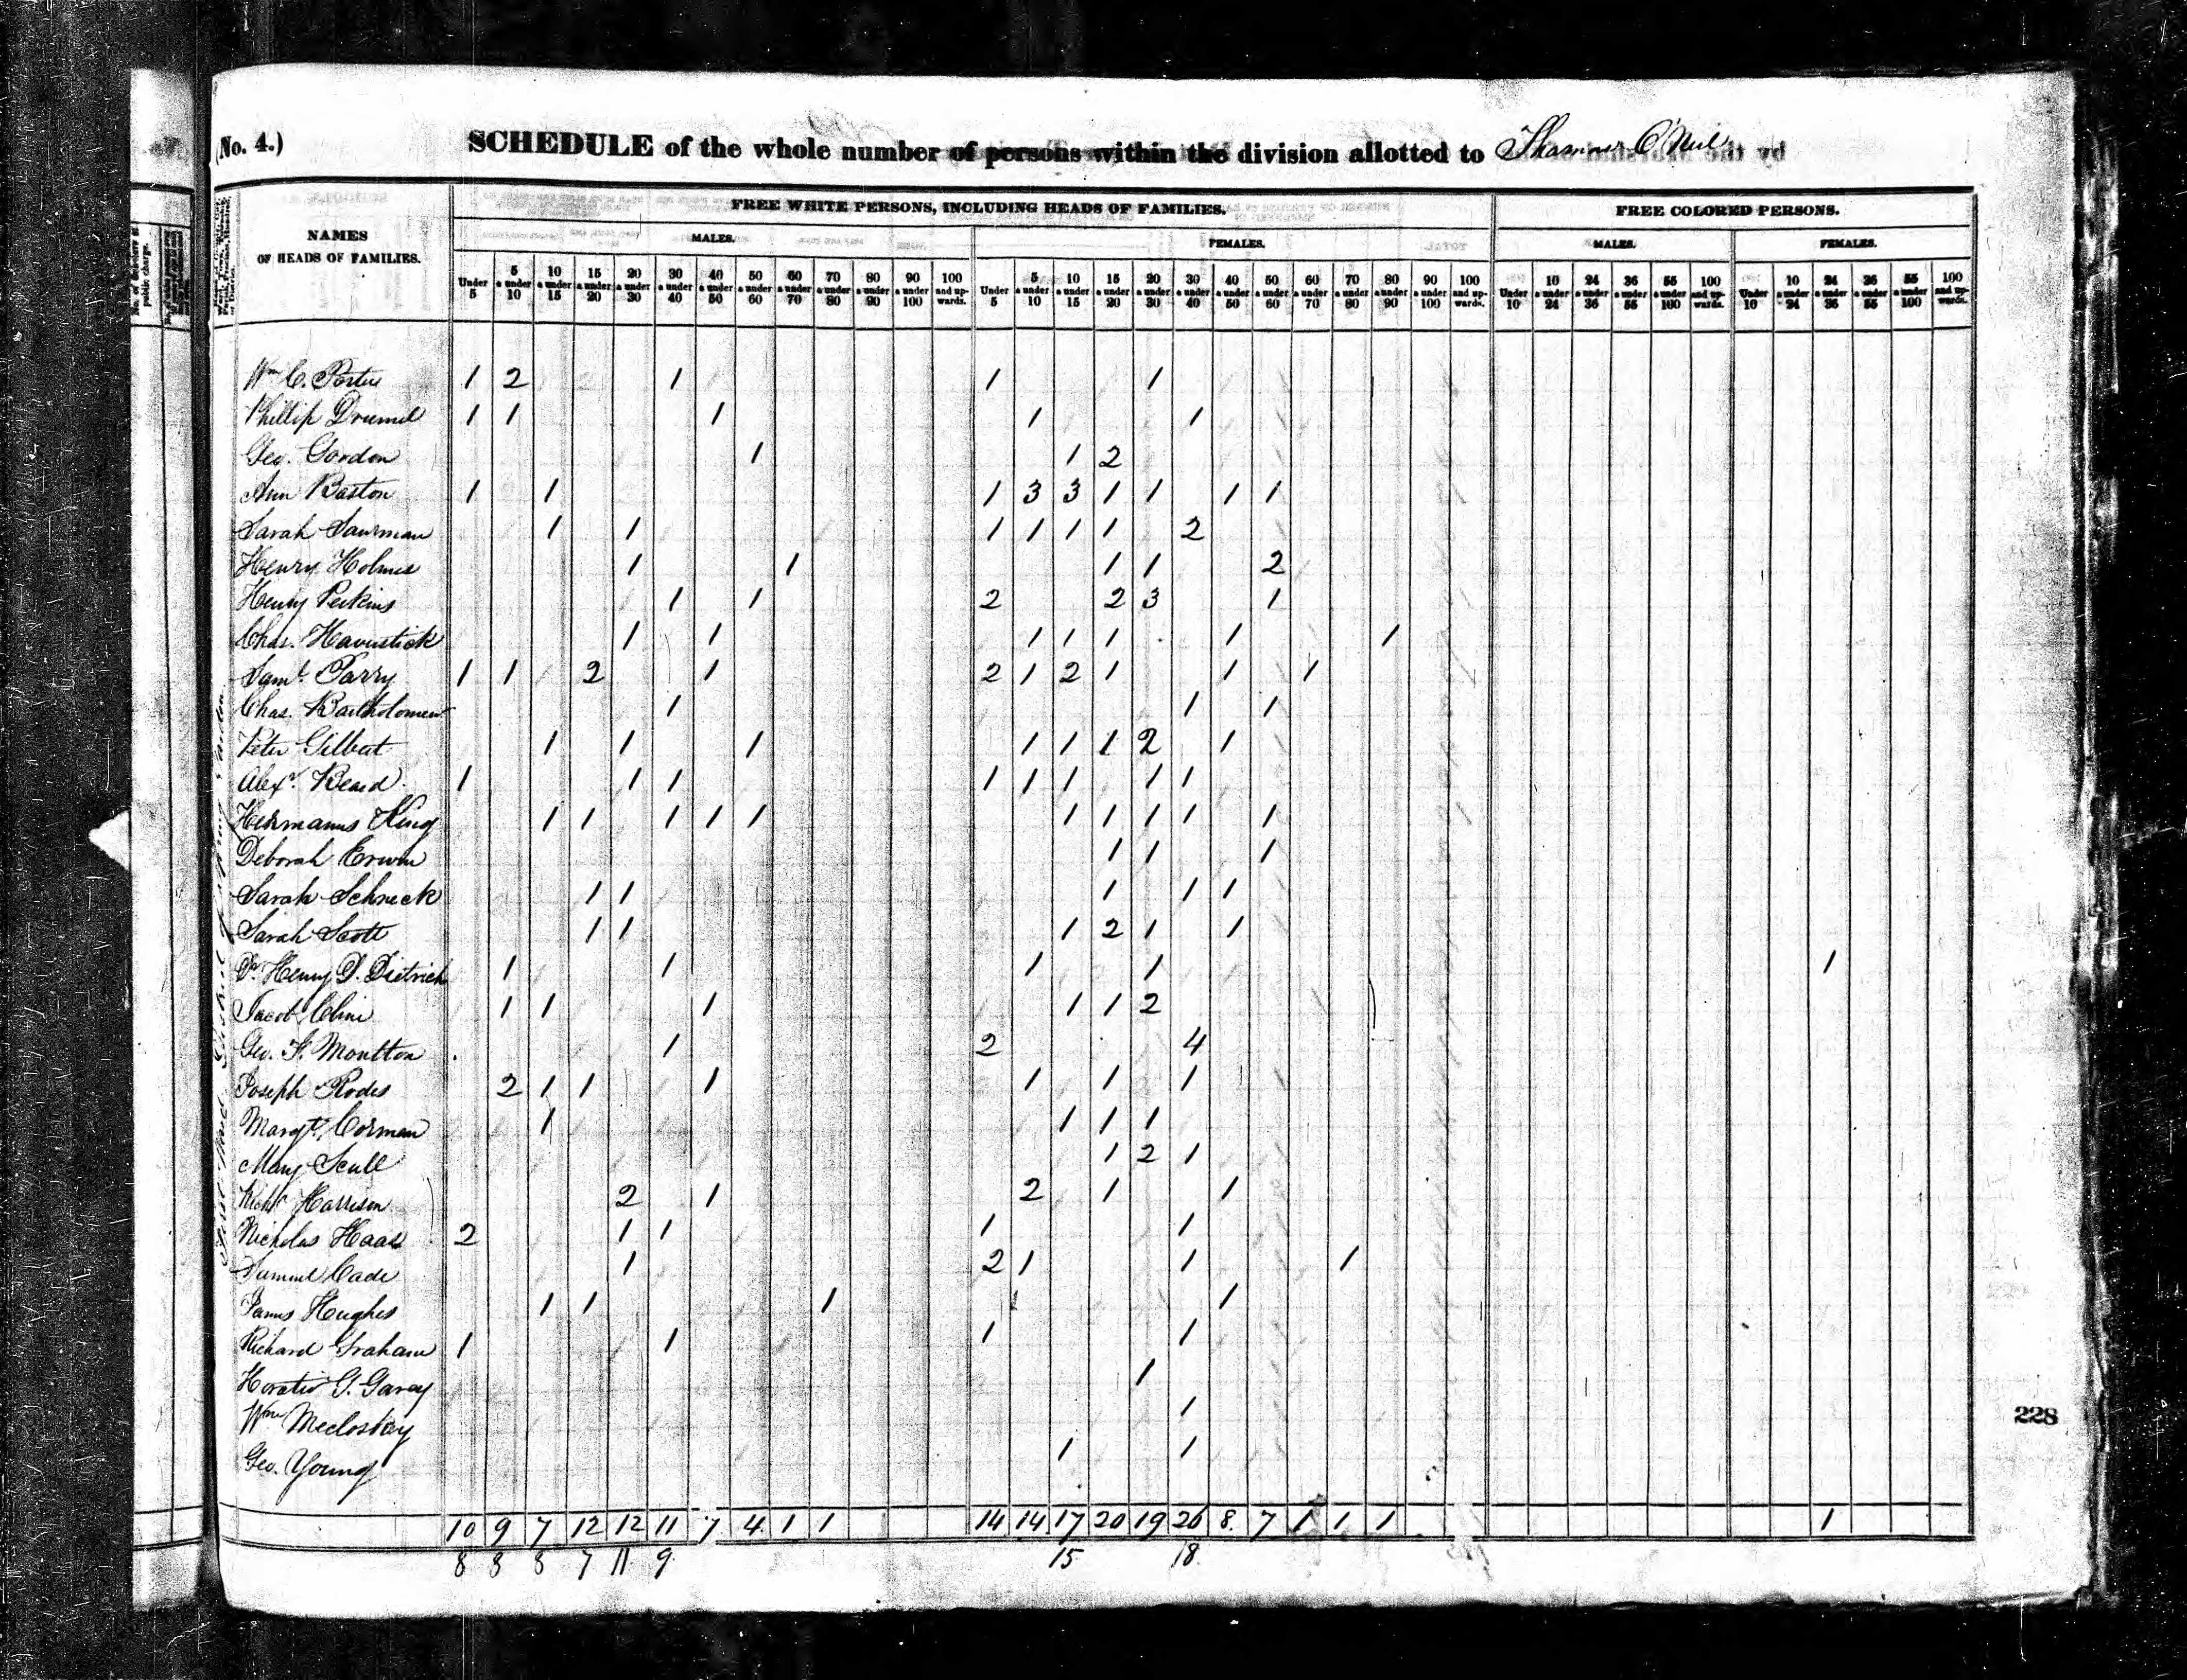 (No. 4.)
SCHEDULE of the whole number of persons within the division allotted to Thomas O'Neill
NAMES OF HEADS OF FAMILIES.
FREE WHITE PERSONS, INCLUDING HEADS OF FAMILIES.
FREE COLORED PERSONS.
MALES. FEMALES. MALES. FEMALES.
Under 5 | 5 & under 10 | 10 & under 15 | 15 & under 20 | 20 & under 30 | 30 & under 40 | 40 & under 50 | 50 & under 60 | 60 & under 70 | 70 & under 80 | 80 & under 90 | 90 & under 100 | 100 and upwards. | Under 5 | 5 & under 10 | 10 & under 15 | 15 & under 20 | 20 & under 30 | 30 & under 40 | 40 & under 50 | 50 & under 60 | 60 & under 70 | 70 & under 80 | 80 & under 90 | 90 & under 100 | 100 and upwards. | Under 10 | 10 & under 24 | 24 & under 36 | 36 & under 55 | 55 & under 100 | 100 and upwards. | Under 10 | 10 & under 24 | 24 & under 36 | 36 & under 55 | 55 & under 100 | 100 and upwards.
Wm C. Porter 1 2 1 1 1
Phillip 1 1 1 1 1
Geo. Gordon 1 1 2
Ann Baston 1 1 1 3 3 1 1 1 1
Sarah Saurman 1 1 1 1 1 1 2
Henry Holmes 1 1 1 1 2
Henry Perkins 1 1 2 2 3 1
Chas. Haverstick 1 1 1 1 1 1 1
Saml. Parry 1 1 2 1 2 1 2 1 1 1
Chas. Bartholomew 1 1 1
Peter Gilbert 1 1 1 1 1 1 2 1
Alexr. Beard 1 1 1 1 1 1 1 1
Hermanus King 1 1 1 1 1 1 1 1 1 1
Deborah Erwin 1 1 1
Sarah Schneck 1 1 1 1 1
Sarah Scott 1 1 1 2 1 1
Dr. Henry D. Dietrich 1 1 1 1 1
Jacob Cline 1 1 1 1 1 2
Geo. F. Moulton 1 2 4
Joseph Rodes 2 1 1 1 1 1 1
Margt. Corman 1 1 1 1
Mary Scull 1 2 1
Harrison 2 1 2 1 1
Nicholas Haas 2 1 1 1 1
Samuel Cade 1 2 1 1 1
James Hughes 1 1 1 1
Richard Graham 1 1 1 1
Horatio G. 1
Wm Mecloskey 1
Geo. Young 1 1
10 9 7 12 12 11 7 4 1 1 14 14 17 20 19 26 8 7 1 1 1 1
8 8 8 7 11 9 15 18
228